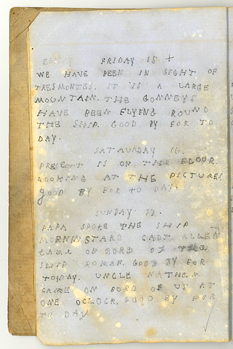 FRIDAY 15 +
WE HAVE BEEN IN SIGHT OF
IT IS A LARGE
MOUNTAIN. THE GONNEYS
HAVE BEEN FLYING ROUND
THE SHIP GOOD BY FOR TO
DAY.
SATAURDAY 16.
IS ON THE FLOOR
LOOKING AT THE PICTURES
GOOD BY FOR TO DAY.
SUNDAY 17.
PAPA SPOKE THE SHIP
MORNINGSTAR CAPT ALLEN
CAME ON BORD OF THE
SHIP ROMAN. GOOD BY FOR
TODAY. UNCLE NATHEN
CAME ON BORD OF US AT
ONE OCLOCK. GOOD BY FOR
TO DAY